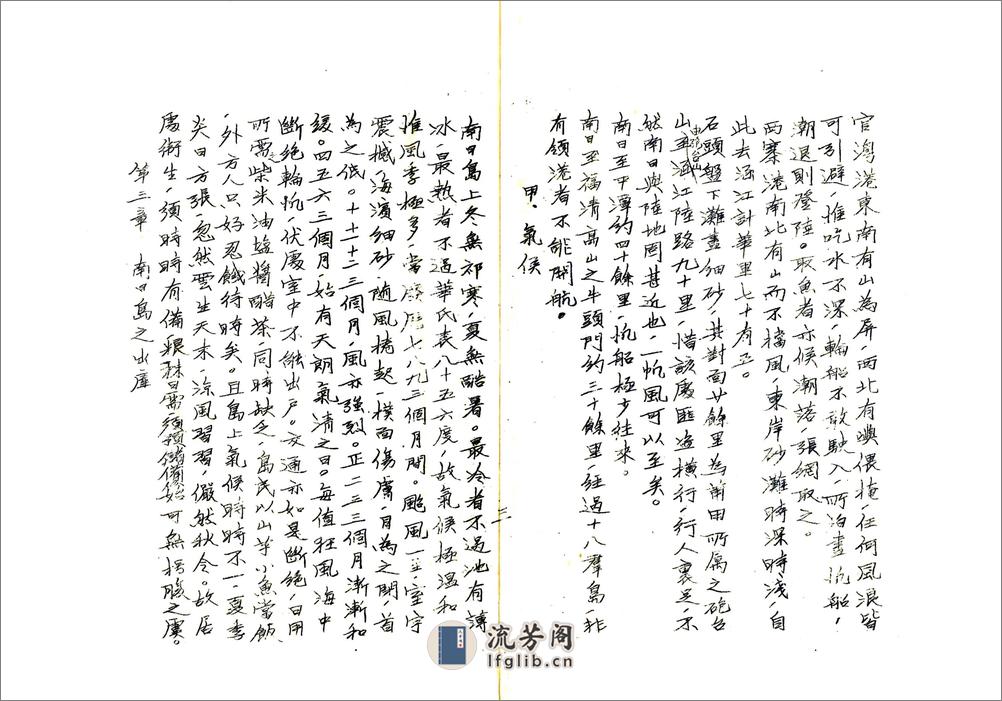 官灣港東南有山為屏，西北有嶼偎掩，任何風浪皆
可引避，惟吃水不深，輪船不敢駛入，所泊盡帆船，
潮退則登陸。取魚者亦候潮落，張網取之。
西寨港南北有山而不擋風，東岸砂灘時深時淺，自
此去涵江計華里七十有五。
石頭盤下灘盡細砂，其對面廿餘里為莆田所属之砲台
山，由砲台山至涵江陸路九十里，惜該處匪盗橫行，行人裹足，不
然南日與陸地固甚近也，一帆風可以至矣。
南日至平潭約四十餘里，帆船極少往來。
南日至福清高山之牛頭門約三十餘里，經過十八羣島，非
有領港者不能開航。
甲、氣候
二
南日島上冬無祁寒，夏無酷暑。最冷者不過池有薄
冰，最熱者不過華氏表八十五六度，故氣候極温和
惟風季極多，常發厝七八九三個月間。颱風一至，室宇
震撼，海濱細砂，随風捲起，樸面傷膚，目為之閉，首
為之低。十、十一、十二三個月，風亦強烈。正二三三個月漸漸和
緩。四五六三個月，始有天朗氣清之日。每值狂風，海中
斷絕輪帆，伏處室中不能出户。交通亦如是斷絕，日用
所需之柴米油塩醬醋茶，同時缺乏，島民以山芋小魚當餉
，外方人只好忍餓待時矣。且島上氣候時時不一，夏季
炎日方張，忽然雲生天末，涼風習習，儼然秋令。故居
處衛生，須時時有備粮秣日需，須積儲備始可無枵腹之虞。
第三章　南日島之出産
流芳阁
lfglib.cn